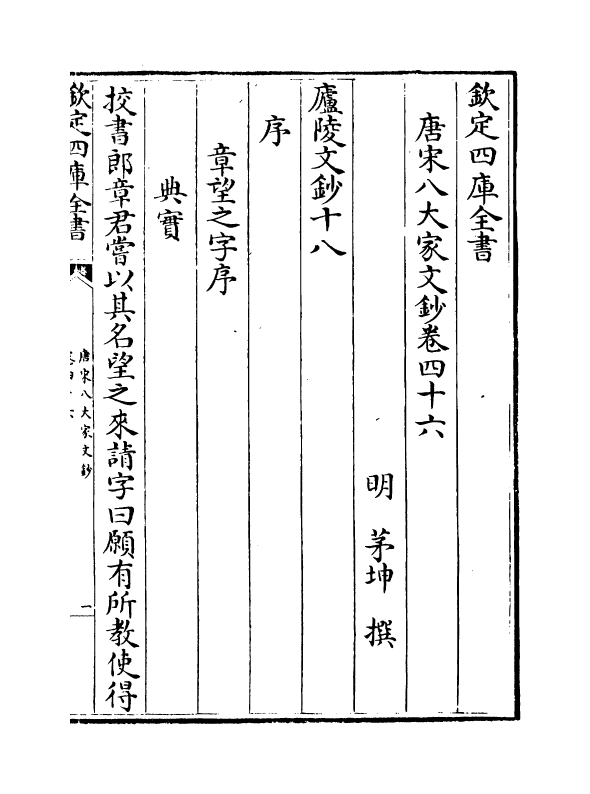 欽定四庫全書
唐宋八大家文鈔卷四十六
明 茅坤 撰
廬陵文鈔十八
序
章望之字序
典實
挍書郎章君嘗以其名望之來請字曰願有所教使得
欽定四庫全書
唐宋八大家文鈔
一